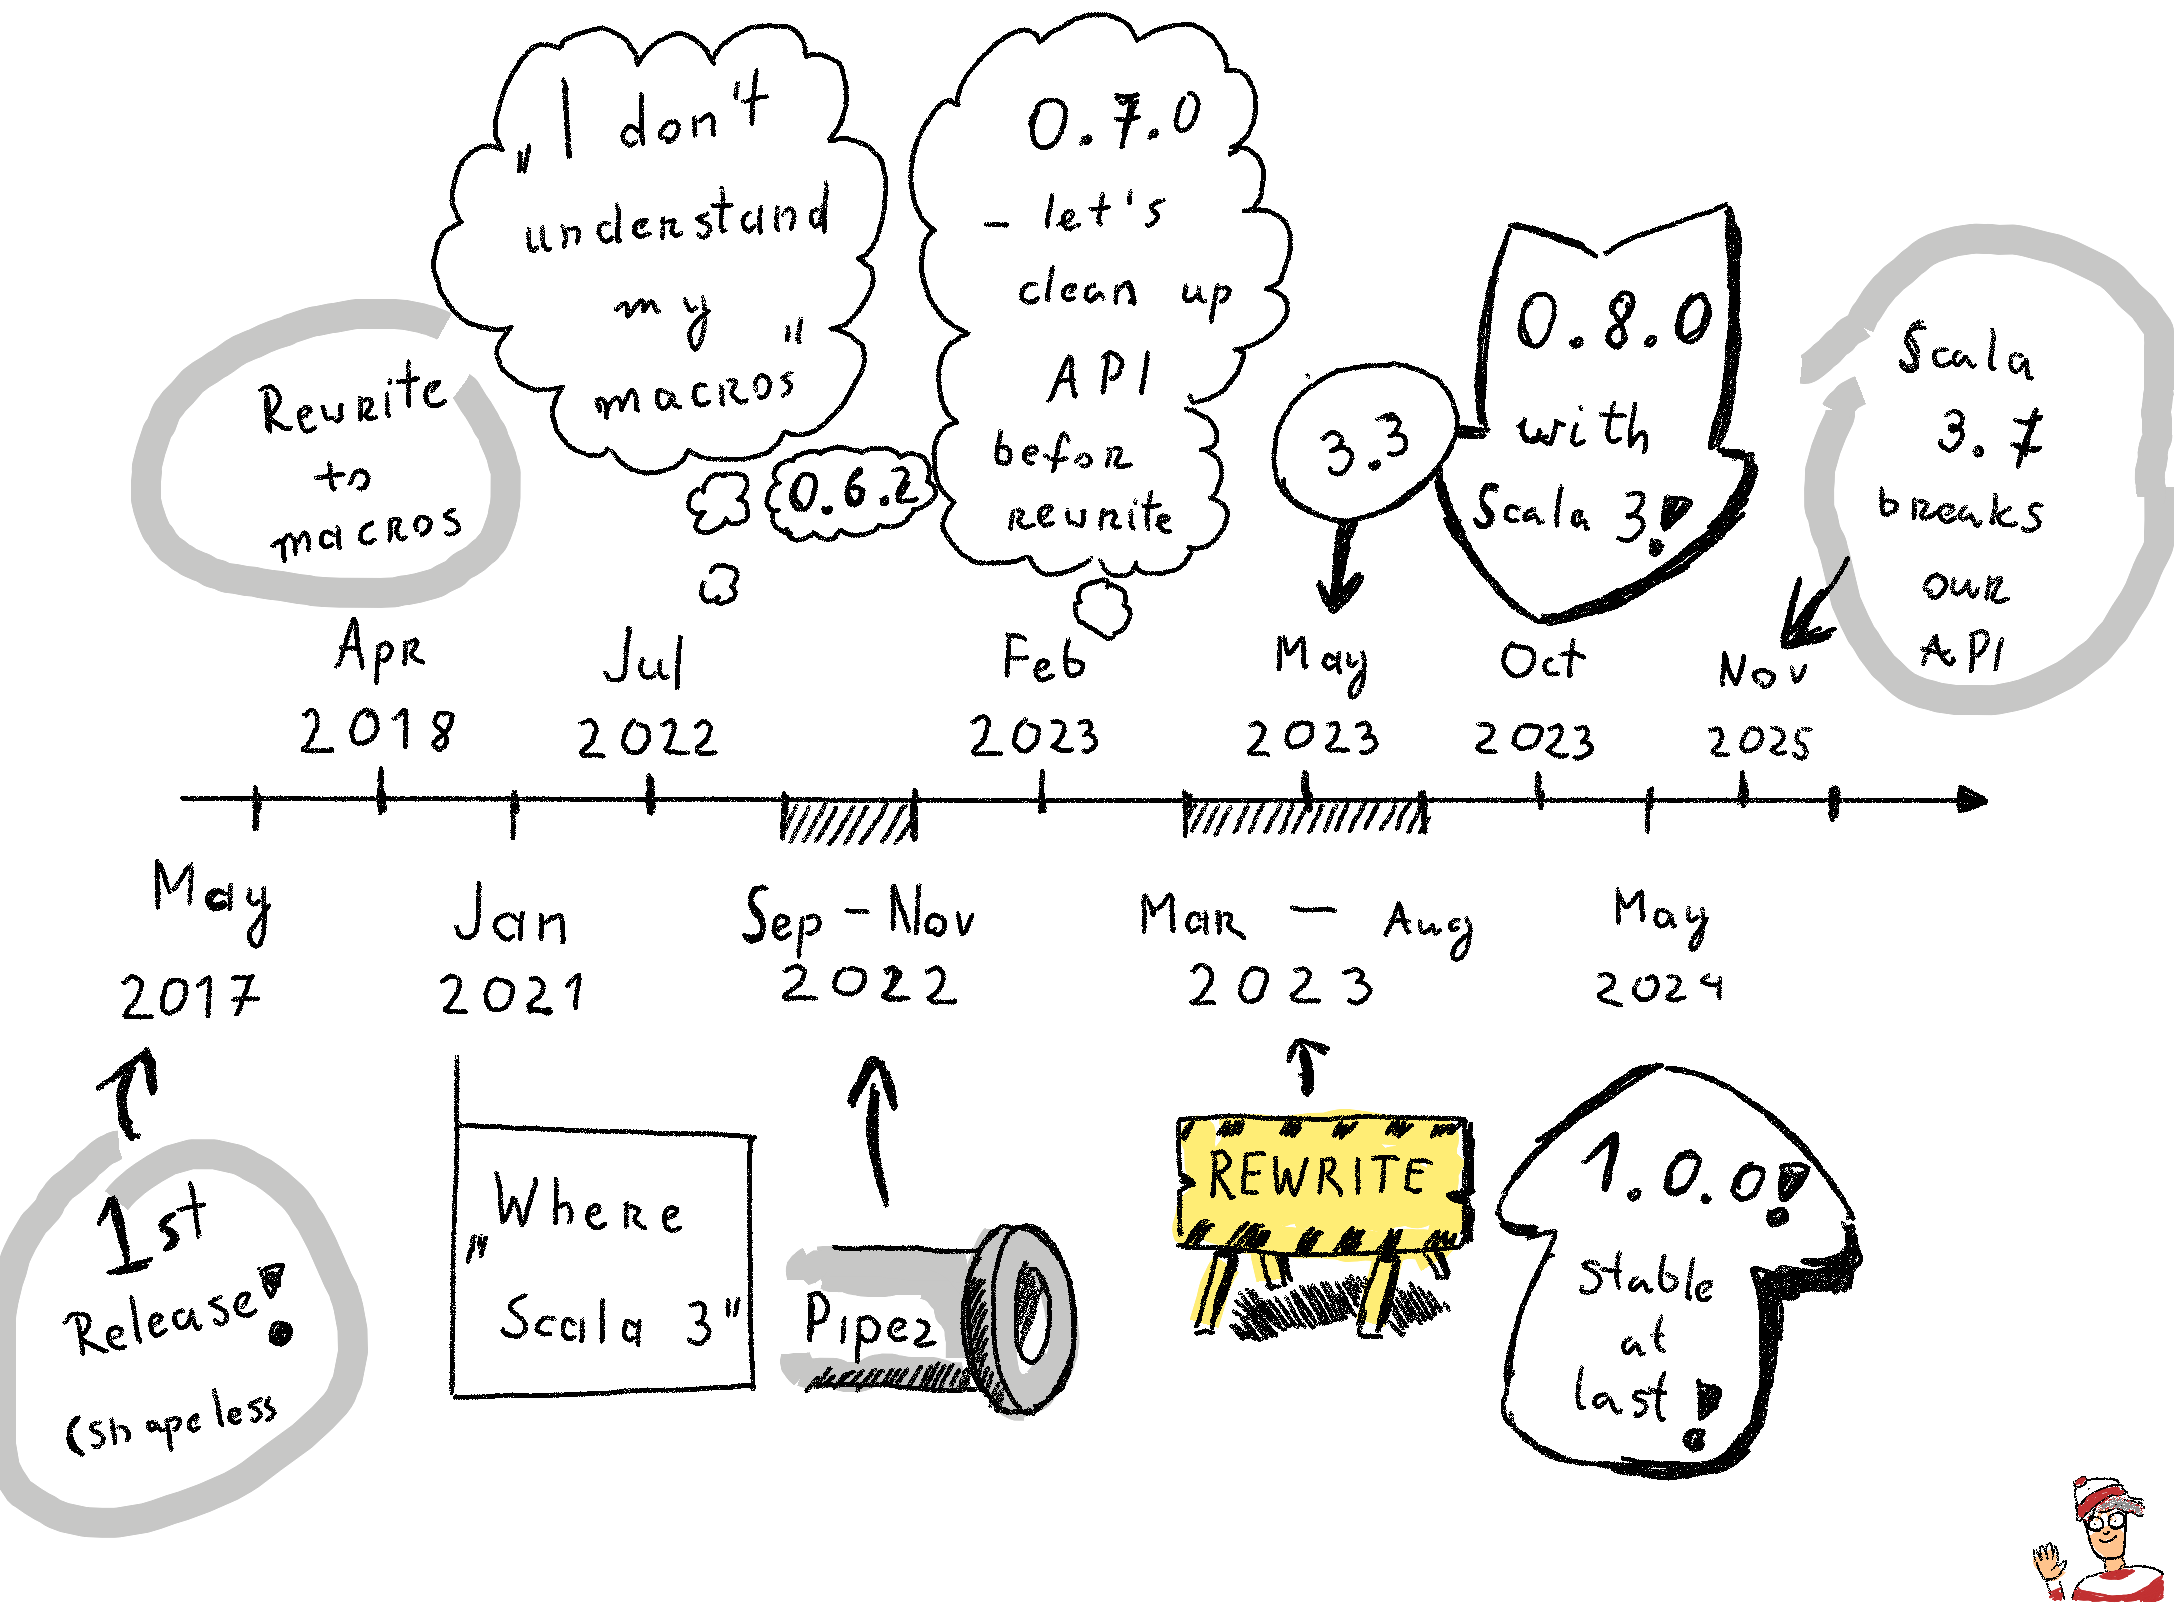 Rewrite
to
macros
„I don't
understand
my
macros"
0.6.2
0.7.0
- let's
clean up
API
befor
rewrite
3.3
0.8.0
with
Scala 3!
Scala
3.7
breaks
our
API
Apr
2018
Jul
2022
Feb
2023
May
2023
Oct
2023
Nov
2025
May
2017
Jan
2021
Sep - Nov
2022
Mar — Aug
2023
May
2024
1st
Release!
(shapeless
„Where
Scala 3"
Pipez
REWRITE
1.0.0!
stable
at
last!